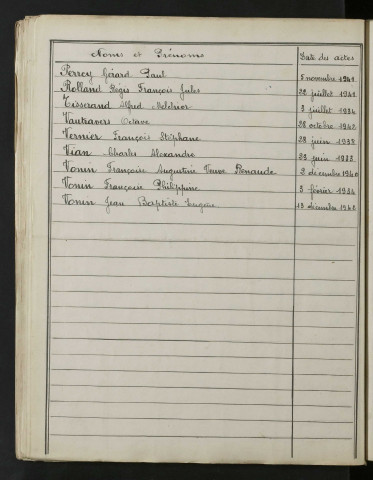 Noms et Prénoms Date des actes
Perroy Gérard Paul 5 novembre 1941
Rolland Régis François Jules 22 juillet 1942
Tisserand Alfred Melchior 3 juillet 1934
Vautravers Octave 28 octobre 1942
Vernier François Stéphane 28 juin 1938
Vian Charles Alexandre 23 juin 1933
Vonin Françoise Augustine Veuve Renaude 2 décembre 1940
Vonin François Philippine 3 février 1934
Vonin Jean Baptiste Eugène 13 décembre 1942